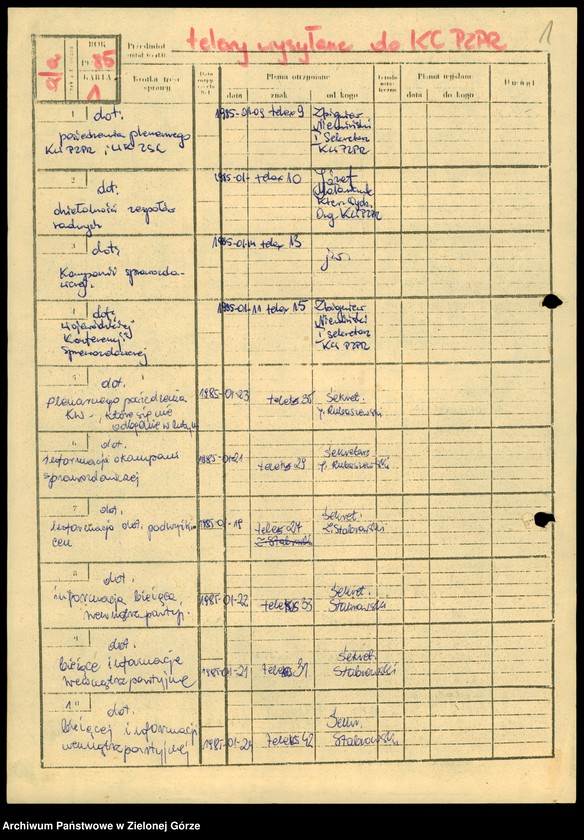 telexy wysyłane do KC PZPR
1
a/a
ROK
1985
KARTA
1
Przedmiot
Krótka treść sprawy
Data
Pisma otrzymane
data
znak
od kogo
Pisma wysłane
data
do kogo
Uwagi
1
dot.
posiedzenia plenarnego
KW PZPR i WK ZSL
1985-01-09
telex 9
Zbigniew
Niemiński
I Sekretarz
KW PZPR
2
dot.
działalności zespołów
radnych
1985-01-
telex 10
Józef
Org. KW PZPR
3
dot.
Kampanii sprawozda-
wczej.
1985-01-11
telex 13
jw.
4
dot.
Wojewódzkiej
Konferencji
Sprawozdawczej
1985-01-11
telex 15
Zbigniew
Niemiński
I sekretarz
KW PZPR
5
dot.
plenarnego posiedzenia
KW -, które się nie
odbędzie w lutym
1985-01-23
teleks 35
Sekret.
J. Rubaszewski
6
dot.
informacji o kampanii
sprawozdawczej
1985-01-21
teleks 29
Sekretarz
J. Rubaszewski
7
dot.
Informacja dot. podwyżki
cen
1985-01-19
teleks 27
Sekret.
Z. Stabrowski
8
dot.
informacja bieżąca
wewnątrzpartyj.
1985-01-22
teleks 33
Sekret.
Stabrowski
9
dot.
bieżące informacje
wewnątrzpartyjne
1985-01-21
teleks 31
Sekret.
Stabrowski
10
dot.
bieżącej informacji
wewnątrzpartyjnej
1985-01-24
teleks 42
Sekr.
Stabrowski
Archiwum Państwowe w Zielonej Górze